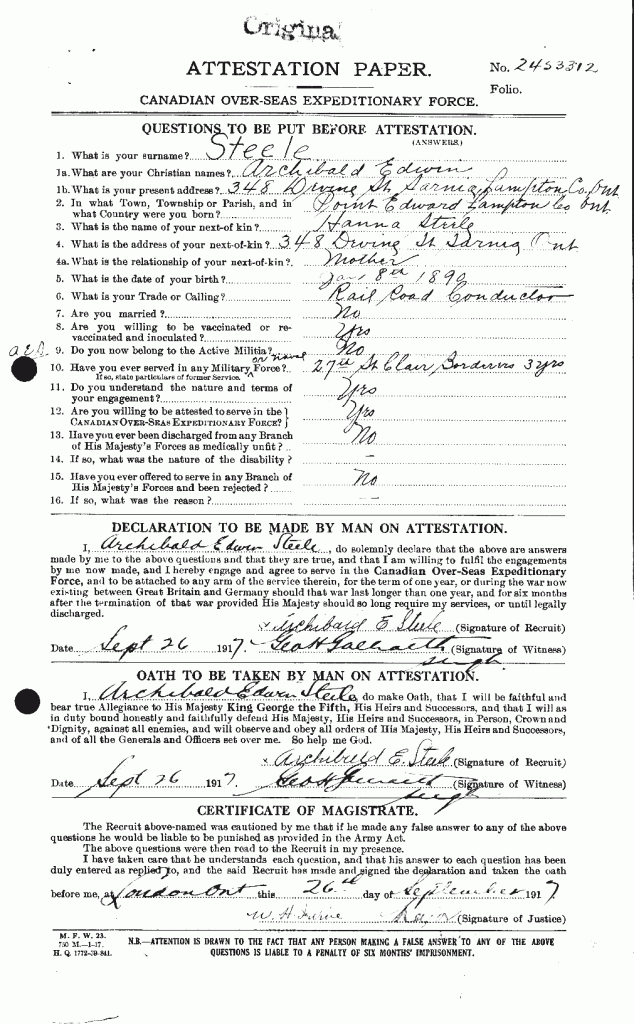 Original
ATTESTATION PAPER.
No. 2453312
Folio.
CANADIAN OVER-SEAS EXPEDITIONARY FORCE.
QUESTIONS TO BE PUT BEFORE ATTESTATION.
(ANSWERS)
1. What is your surname? Steele
1a. What are your Christian names? Archibald Edwin
1b. What is your present address? 348 Irving St. Sarnia, Lampton Co. Ont
2. In what Town, Township or Parish, and in what Country were you born? Point Edward Lampton Co Ont.
3. What is the name of your next-of-kin? Hanna Steele
4. What is the address of your next-of-kin? 348 Irving St Sarnia Ont
4a. What is the relationship of your next-of-kin? Mother
5. What is the date of your birth? Jan 8th 1890
6. What is your Trade or Calling? Rail Road Conductor
7. Are you married? No
8. Are you willing to be vaccinated or re-vaccinated and inoculated? Yes
9. Do you now belong to the Active Militia? No
10. Have you ever served in any Military or Naval Force? 27th St Clair, Borderers 3 yrs
If so, state particulars of former Service.
11. Do you understand the nature and terms of your engagement? Yes
12. Are you willing to be attested to serve in the CANADIAN OVER-SEAS EXPEDITIONARY FORCE? Yes
13. Have you ever been discharged from any Branch of His Majesty's Forces as medically unfit? No
14. If so, what was the nature of the disability? –
15. Have you ever offered to serve in any Branch of His Majesty's Forces and been rejected? No
16. If so, what was the reason? –
DECLARATION TO BE MADE BY MAN ON ATTESTATION.
I, Archibald Edwin Steele, do solemnly declare that the above are answers
made by me to the above questions and that they are true, and that I am willing to fulfil the engagements
by me now made, and I hereby engage and agree to serve in the Canadian Over-Seas Expeditionary
Force, and to be attached to any arm of the service therein, for the term of one year, or during the war now
existing between Great Britain and Germany should that war last longer than one year, and for six months
after the termination of that war provided His Majesty should so long require my services, or until legally
discharged.
Archibald E Steele (Signature of Recruit)
Date Sept 26 1917. Geo H Galbraith (Signature of Witness)
OATH TO BE TAKEN BY MAN ON ATTESTATION.
I, Archibald Edwin Steele do make Oath, that I will be faithful and
bear true Allegiance to His Majesty King George the Fifth, His Heirs and Successors, and that I will as
in duty bound honestly and faithfully defend His Majesty, His Heirs and Successors, in Person, Crown and
Dignity, against all enemies, and will observe and obey all orders of His Majesty, His Heirs and Successors,
and of all the Generals and Officers set over me. So help me God.
Archibald E. Steele (Signature of Recruit)
Date Sept 26 1917. Geo H Galbraith (Signature of Witness)
CERTIFICATE OF MAGISTRATE.
The Recruit above-named was cautioned by me that if he made any false answer to any of the above
questions he would be liable to be punished as provided in the Army Act.
The above questions were then read to the Recruit in my presence.
I have taken care that he understands each question, and that his answer to each question has been
duly entered as replied to, and the said Recruit has made and signed the declaration and taken the oath
before me, at London Ont this 26th day of September 1917
(Signature of Justice)
M. F. W. 23.
750 M.—1-17.
H. Q. 1772-39-841.
N.B.—ATTENTION IS DRAWN TO THE FACT THAT ANY PERSON MAKING A FALSE ANSWER TO ANY OF THE ABOVE
QUESTIONS IS LIABLE TO A PENALTY OF SIX MONTHS' IMPRISONMENT.